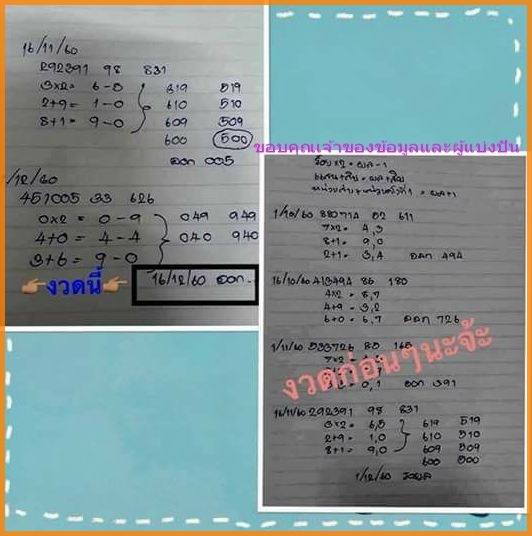 16/11/60
292391 98 831
3x2= 6-5 619 519
2+9= 1-0 610 510
8+1= 9-0 609 509
600 500
ออก 005
/12/60
451005 33 626
0x2 = 0-9 049 949
4+0 = 4-4 040 940
3+6 = 9-0
👉งวดนี้👉 16/12/60 ออก..
ขอบคุณเจ้าของข้อมูลและผู้แบ่งปัน
ร้อยx2 = ผล-1
1/10/60 880714 02 611
7x2= 4,3
8+1= 9,0
2+1= 3,4 ออก 494
16/10/60 413494 86 180
4x2 = 8,7
4+9 = 3,2
6+0 = 6,7 ออก 726
1/11/60 533726 85 165
7x2=
= 0,1 ออก 391
งวดก่อนๆนะจ้ะ
16/11/60 292391 98 831
3x2= 6,5 619 519
2+9= 1,0 610 510
8+1= 9,0 609 509
600 500
1/12/60 รอผล